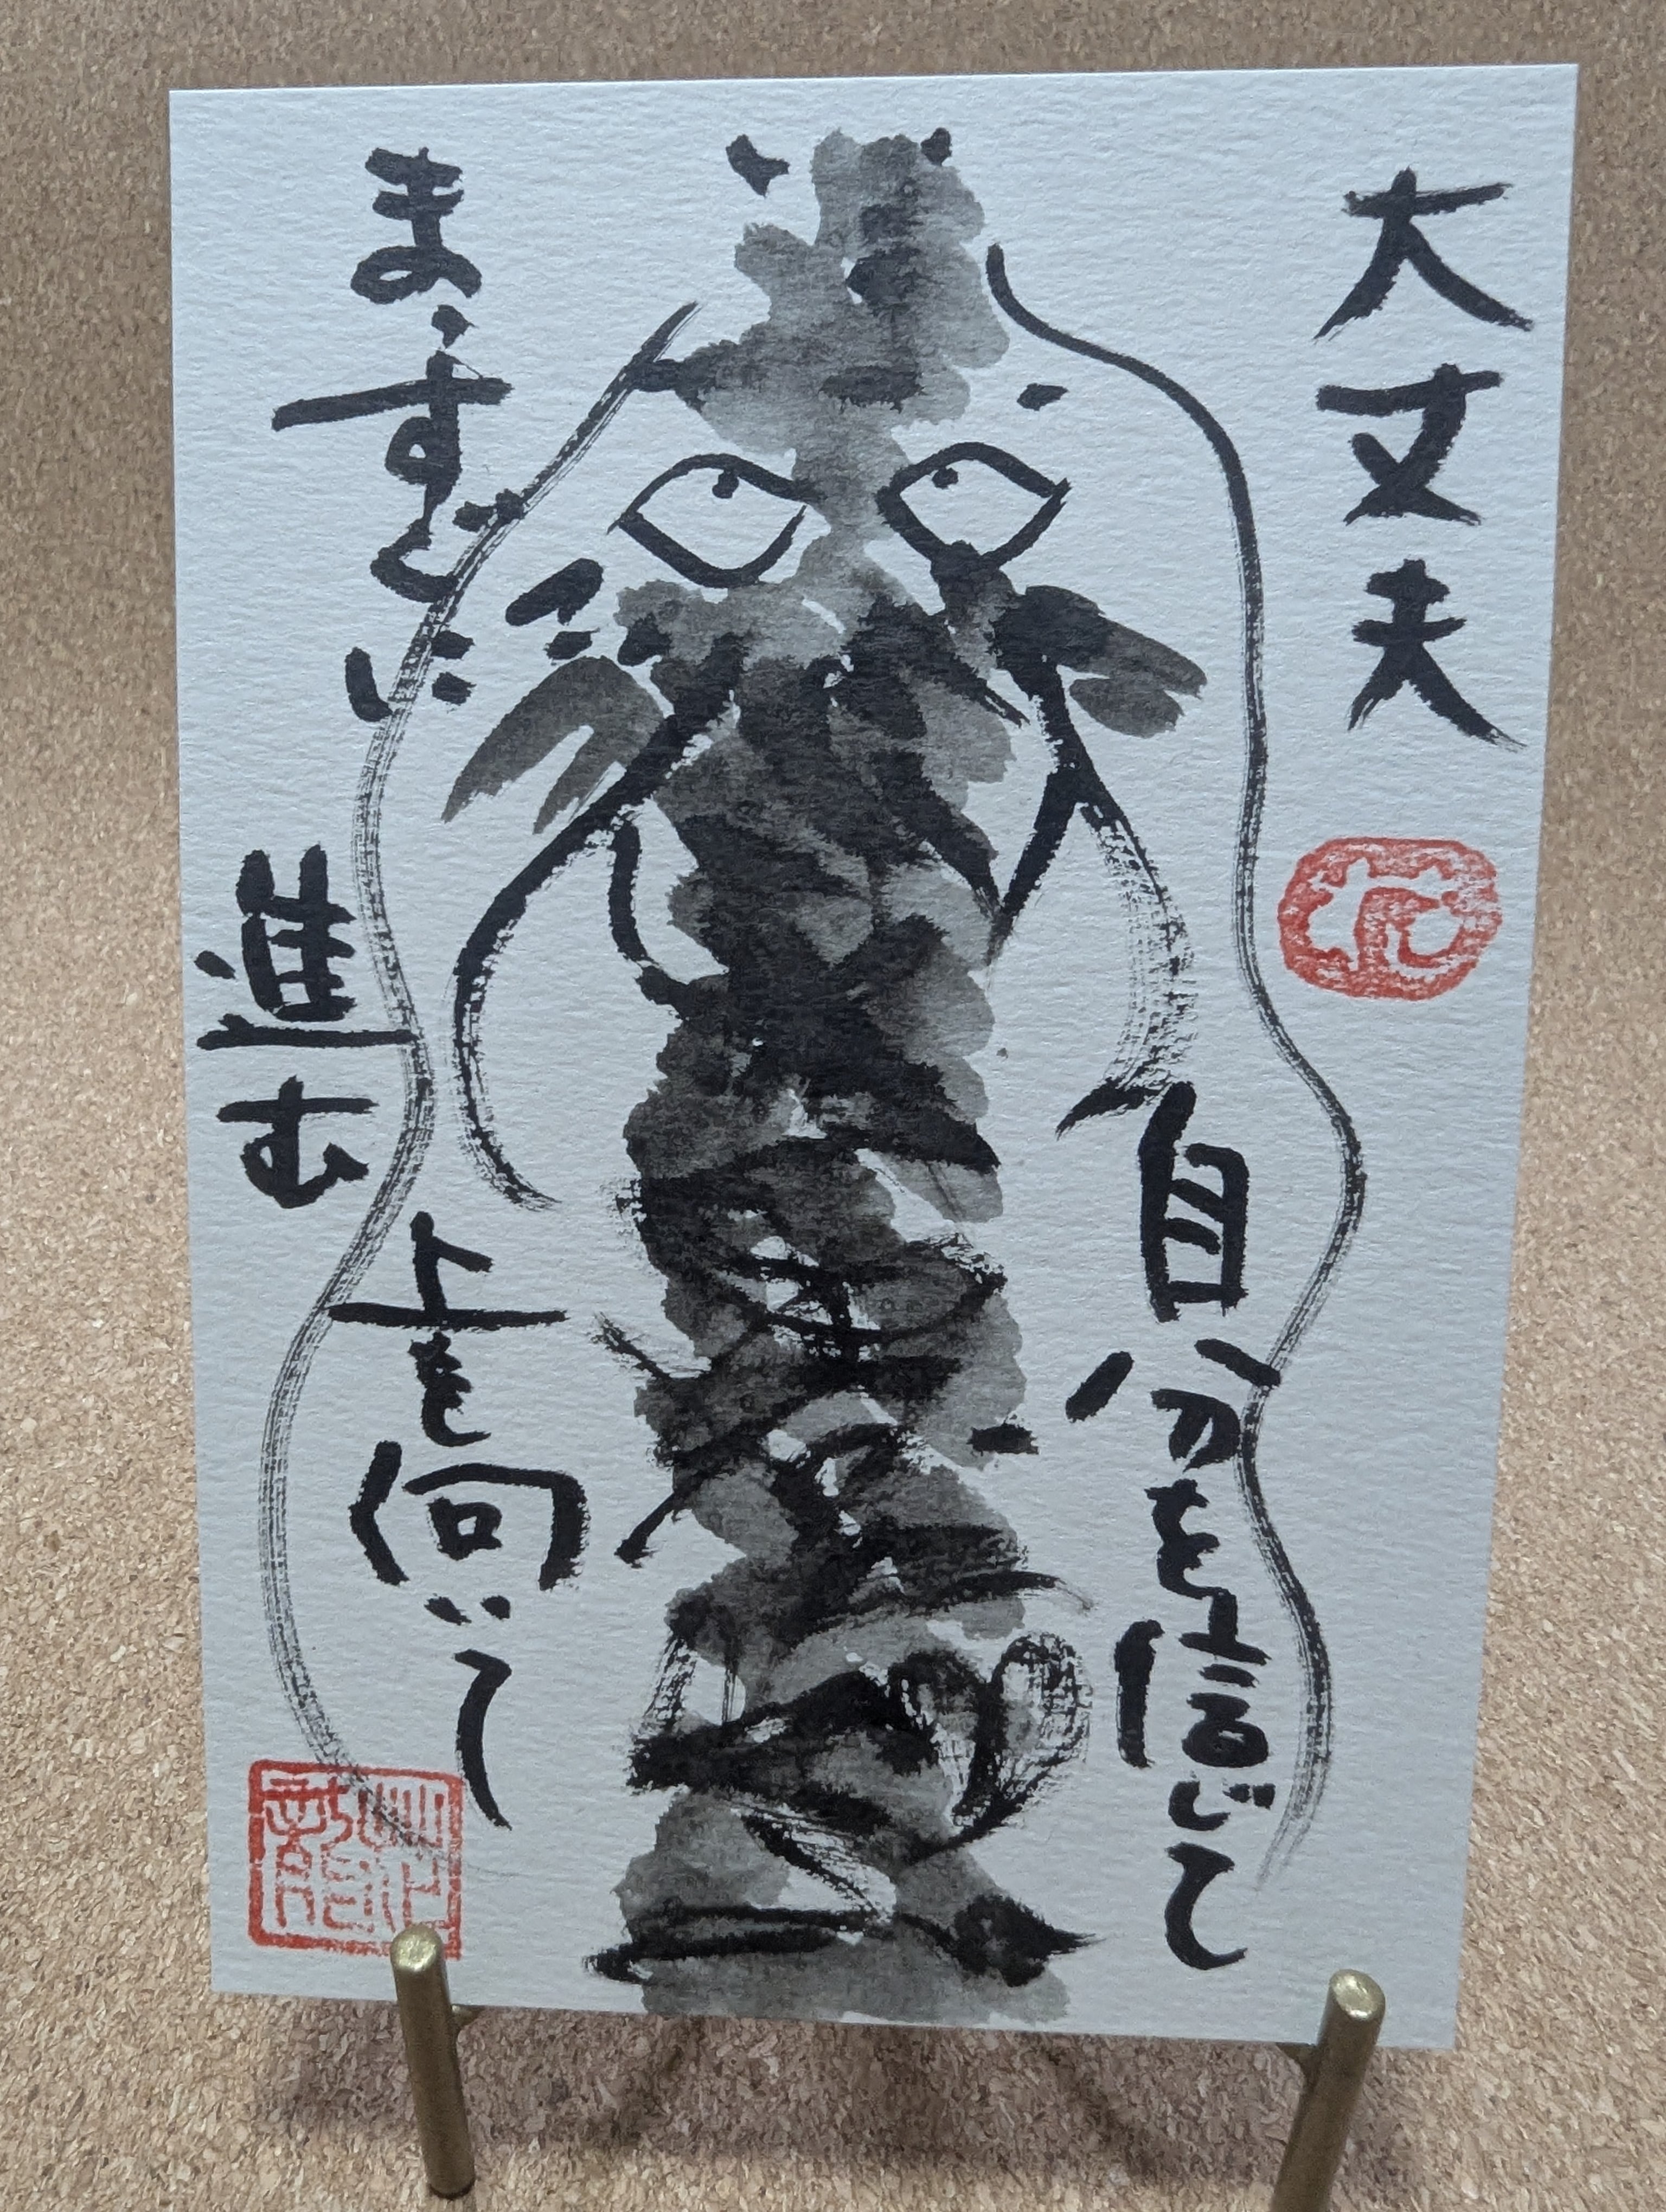 大丈夫
自分を信じて
上を向いて
まっすぐに
進む